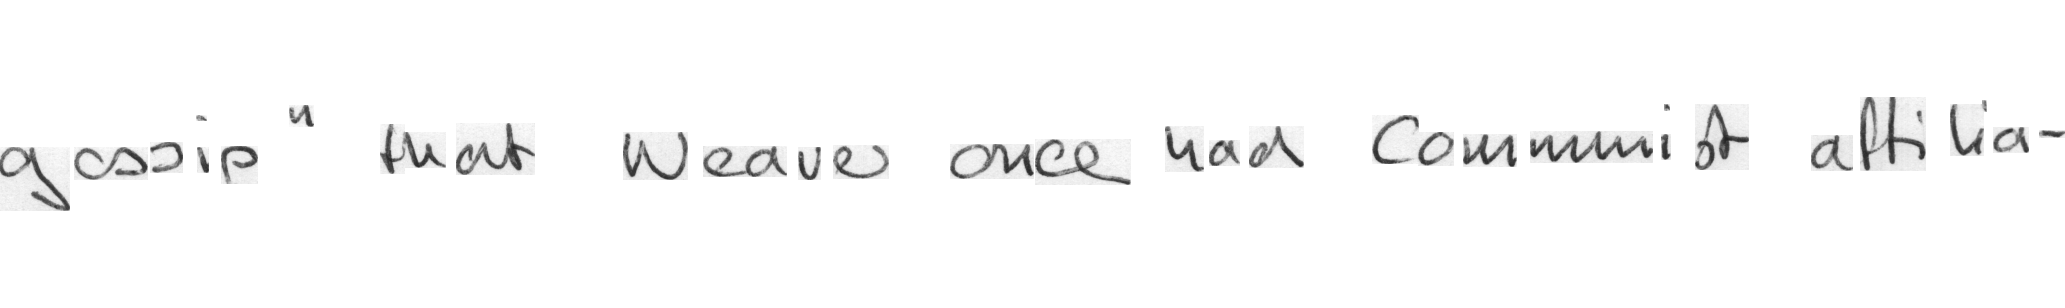 gossip" that Weaver once had Communist affilia-